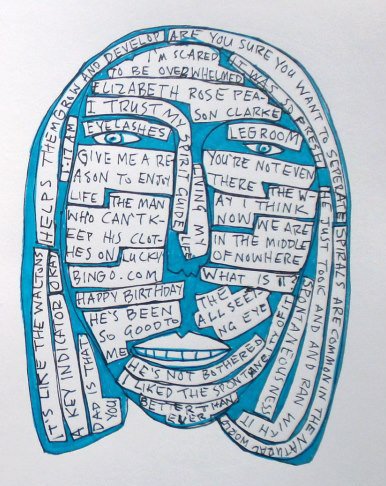 HELPS THEM GROW AND DEVELOP
ARE YOU SURE YOU WANT TO SEVER
SPIRALS ARE COMMON IN THE NATURAL WORLD
IT WAS SO FRESH
HE JUST TOOK AND AND RAN WITH IT
SPONTANEOUSNESS OF IT
1:17 AM
I'M SCARED
TO BE OVERWHELMED
ELIZABETH ROSE PEA-
SON CLARKE
I TRUST MY
SPIRIT GUIDE
EYELASHES
LEGROOM
LIVING MY
LIFE
GIVE ME A RE-
ASON TO ENJOY
LIFE
THE MAN
WHO CAN'T K-
EEP HIS CLOT-
HES ON
LUCKY
BINGO.COM
HAPPY BIRTHDAY
HE'S BEEN
SO GOOD TO
ME
YOU'RE NOT EVEN
THERE
THE W-
AY I THINK
NOW
WE ARE
IN THE MIDDLE
OF NOWHERE
WHAT IS IT
THE
ALL SEEI-
NG EYE
HE'S NOT BOTHERED
I LIKED THE SPONTANE
BETTER THAN
EVER
IT'S LIKE THE WALTONS
A KEY INDICATOR
OKAY
DAD IS THAT
YOU